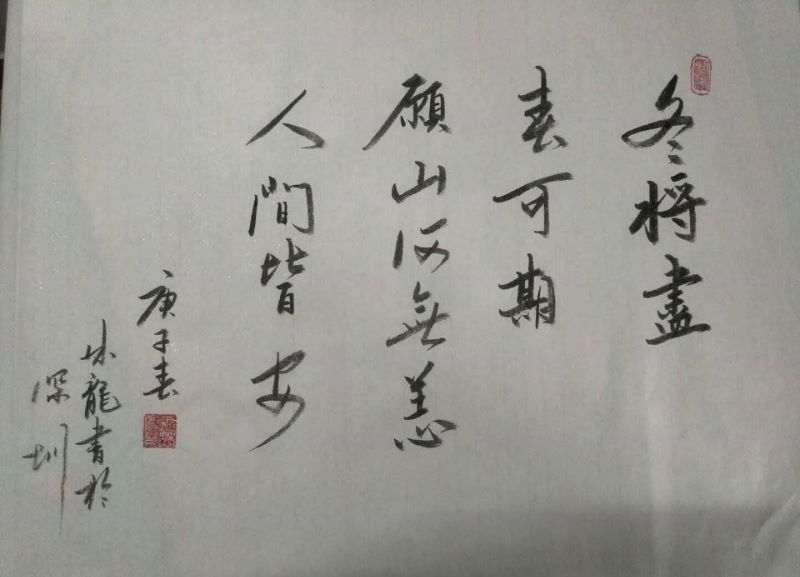 冬将盡
春可期
願山河無恙
人間皆安
庚子春
龍書於
深圳